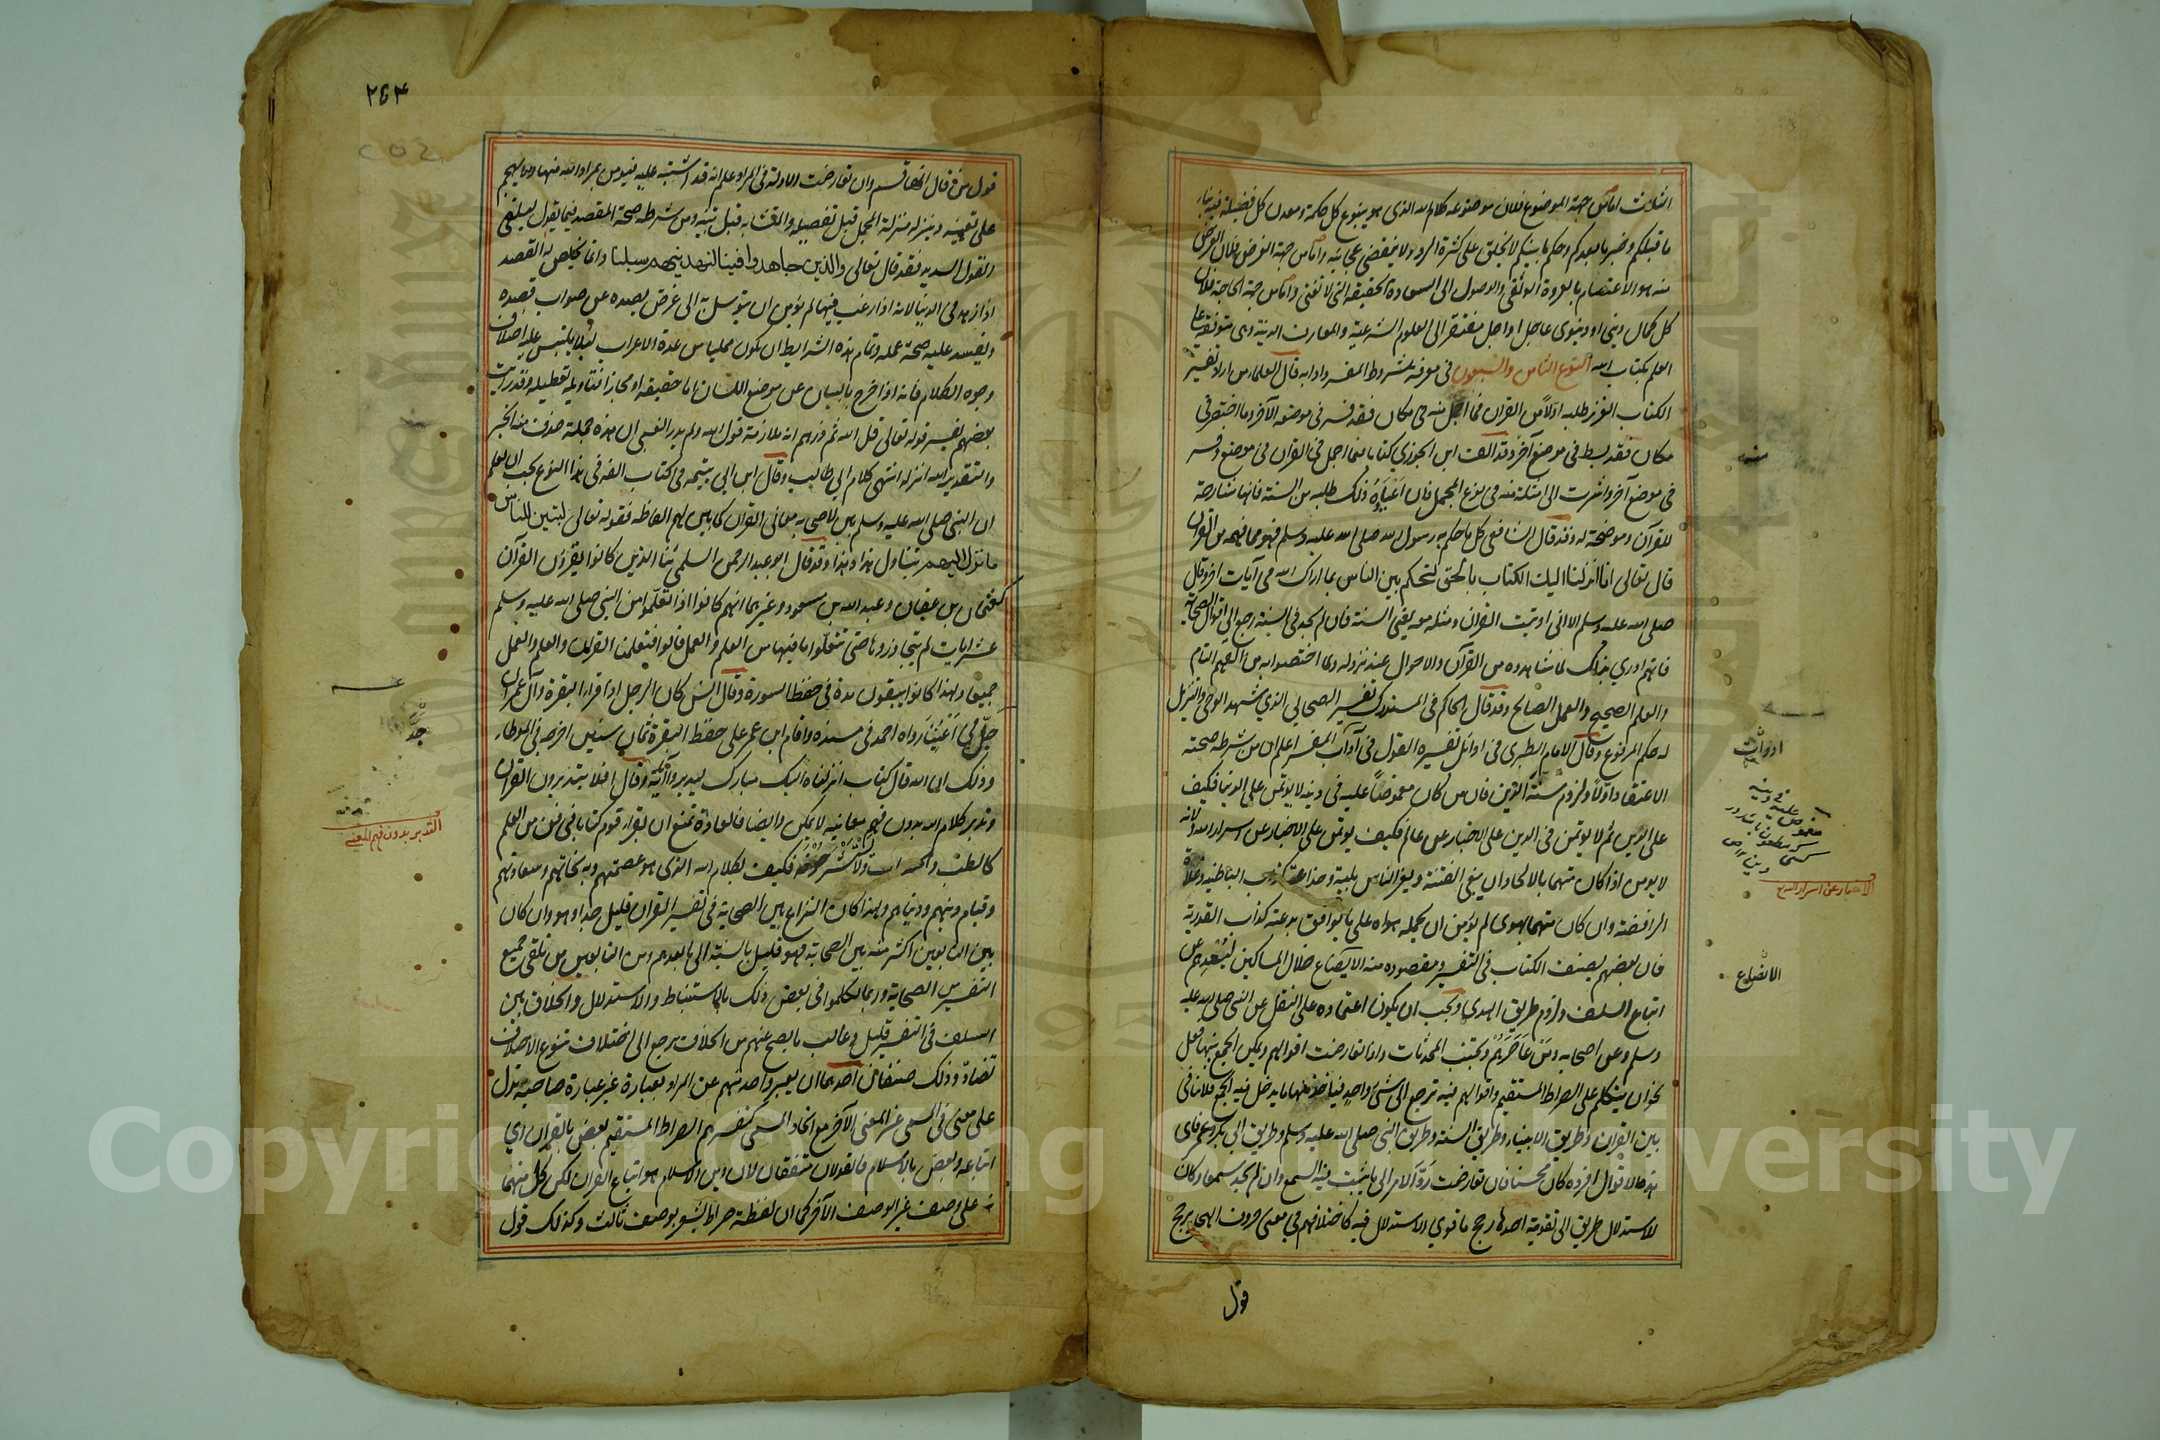 الثلاث اما من جهة الموضوع فلان موضوعه كلام الله الذى هو ينبوع كل حكمة ومعدن كل فضيلة فيه نبأ
ما قبلكم وخبر ما بعدكم وحكم ما بينكم لا يخلق على كثرة الرد ولا ينقضى عجائبه واما من جهة الغرض فلان الغرض
منه هو الاعتصام بالعروة الوثقى والوصول الى السعادة الحقيقية التى لا تفنى واما من جهة الحاجة فلان
كل كمال دينى او دنيوى عاجل او اجل مفتقر الى العلوم الشرعية والمعارف الدينية وهى متوقفة على
العلم بكتاب الله النوع الثامن والسبعون فى معرفة شروط المفسر وادابه قال العلما من اراد تفسير
الكتاب العزيز طلبه اولا من القرآن فما اجمل منه فى مكان فقد فسر فى موضع آخر وما اختصر فى
مكان فقد بسط فى موضع آخر وقد الف ابن الجوزي كتابا فيما اجمل فى القرآن فى موضع وفسر
فى موضع آخر واشرت الى امثلة منه فى نوع المجمل فان اعياه ذلك طلبه من السنة فانها شارحة
للقرآن وموضحة له وقد قال الشافعى كل ما حكم به رسول الله صلى الله عليه وسلم فهو مما فهمه من القرآن
قال تعالى انا انزلنا اليك الكتاب بالحق لتحكم بين الناس بما اراك الله فى آيات اخر وقال
صلى الله عليه وسلم الا انى اوتيت القرآن ومثله معه يعنى السنة فان لم يجد فى السنة رجع الى اقوال الصحابة
فانهم ادرى بذلك لما شاهدوه من القرآن والاحوال عند نزوله ولما اختصوا به من الفهم التام
والعلم الصحيح والعمل الصالح وقد قال الحاكم فى المستدرك تفسير الصحابي الذي شهد الوحى والتنزيل
له حكم المرفوع وقال الامام الطبرى فى اوائل تفسيره القول فى آداب المفسر اعلم ان من شرطه صحته
الاعتقاد اولا ولزوم سنة الدين فان من كان مغموصا عليه فى دينه لا يؤتمن على الدنيا فكيف
على الدين ثم لا يؤتمن فى الدين على الاخبار عن عالم فكيف يؤتمن على الاخبار عن اسرار الله ولانه
لا يؤمن اذا كان متهما بالالحاد ان يبغى الفتنة ويغر الناس بليه وخداعه كدأب الباطنية وغلاة
الرافضة وان كان متهما بهوى لم يؤمن ان يحمله هواه على ما يوافق بدعته كدأب القدرية
فان بعضهم يصنف الكتاب فى التفسير ومقصوده منه الايضاع خلال المساكين ليصدهم عن
اتباع السلف ولزوم طريق الهدى ويجب ان يكون اعتماده على النقل عن النبى صلى الله عليه
وسلم وعن اصحابه ومن عاصرهم ويجتنب المحدثات واذا تعارضت اقوالهم وامكن الجمع بينها فعل
نحو ان يتكلم على الصراط المستقيم واقوالهم فيه ترجع الى شئ واحد فيأخذ منها ما يدخل فيه الجمع فلا تنافى
بين القرآن وطريق الانبياء وطريق السنة وطريق النبى صلى الله عليه وسلم وطريق ابى بكر وعمر فاى
هذه الاقوال افرده كان محسنا فان تعارضت رد الامر الى ما ثبت فيه السمع وان لم يجد سمعا وكان
للاستدلال طريق الى تقوية احدها رجح ما قوي الاستدلال فيه كاختلافهم في معنى حروف الهجا يرجح
قول
اوتيت
الايضاع
الاخبار عن اسرار الله
٢٥٤
قول من قال انها قسم وان تعارضت الادلة فى المراد علم انه قد اشتبه عليه فيؤمن بمراد الله منها ولا يتهجم
على تعيينه وينزله منزلة المجمل قبل تفصيله والمتشابه قبل تبيينه ومن شرطه صحة المقصد فيما يقول ليلقى
القول السديد فقد قال تعالى والذين جاهدوا فينا لنهدينهم سبلنا وانما يخلص له القصد
اذا زهد فى الدنيا لانه اذا رغب فيها لم يؤمن ان يتوسل به الى غرض يصده عن صواب قصده
ويفسد عليه صحة عمله وتمام هذه الشرايط ان يكون ممتليا من عدة الاعراب لئلا يلتبس عليه اختلاف
وجوه الكلام فانه اذا خرج بالبيان عن موضع اللسان اما حقيقة او مجازا فتاويله تعطيله وقد رأيت
بعضهم يفسر قوله تعالى قل الله ثم ذرهم انه ملازمة قول الله ولم يدر الغبى ان هذه جملة حذف منها الخبر
والتقدير الله انزله انتهى كلام ابي طالب وقال ابن تيمية فى كتاب الفه فى هذا النوع يجب ان يعلم
ان النبى صلى الله عليه وسلم بين لاصحابه معانى القرآن كما بين لهم الفاظه فقوله تعالى لتبين للناس
ما نزل اليهم يتناول هذا وهذا وقد قال ابو عبد الرحمن السلمي ثنا الذين كانوا يقرؤن القرآن
كعثمان بن عفان وعبد الله بن مسعود وغيرهما انهم كانوا اذا تعلموا من النبى صلى الله عليه وسلم
عشر ايات لم يتجاوزوها حتى يتعلموا ما فيها من العلم والعمل قالوا فتعلمنا القرآن والعلم والعمل
جميعا ولهذا كانوا يبقون مدة فى حفظ السورة وقال انس كان الرجل اذا قرأ البقرة وآل عمران
جل في اعيننا رواه احمد فى مسنده واقام ابن عمر على حفظ البقرة ثمان سنين اخرجه فى الموطا
وذلك ان الله قال كتاب انزلناه اليك مبارك ليدبروا آياته وقال افلا يتدبرون القرآن
وتدبر كلام الله بدون فهم معانيه لا يمكن وايضا فالعادة تمنع ان يقرأ قوم كتابا فى فن من العلم
كالطب والحساب ولا يستشرحونه فكيف بكلام الله الذى هو عصمتهم وبه نجاتهم وسعادتهم
وقيام دينهم ودنياهم ولهذا كان النزاع بين الصحابة فى تفسير القرآن قليل جدا وهو وان كان
بين التابعين اكثر منه بين الصحابة فهو قليل بالنسبة الى ما بعدهم ومن التابعين من تلقى جميع
التفسير من الصحابة وربما تكلموا فى بعض ذلك بالاستنباط والاستدلال والخلاف بين
السلف فى التفسير قليل وغالب ما يصح عنهم من الخلاف يرجع الى اختلاف تنوع لا اختلاف
تضاد وذلك صنفان احدهما ان يعبر واحد منهم عن المراد بعبارة غير عبارة صاحبه تدل
على معنى فى المسمى غير المعنى الآخر مع اتحاد المسمى كتفسيرهم الصراط المستقيم بعض بالقرآن اي
اتباعه وبعض بالاسلام فالقولان متفقان لان دين الاسلام هو اتباع القرآن لكن كل منهما
نبه على وصف غير الوصف الآخر كما ان لفظة صراط يشعر بوصف ثالث وكذلك قول
جد
التدبر بدون فهم المعنى
Copyright © King Saud University